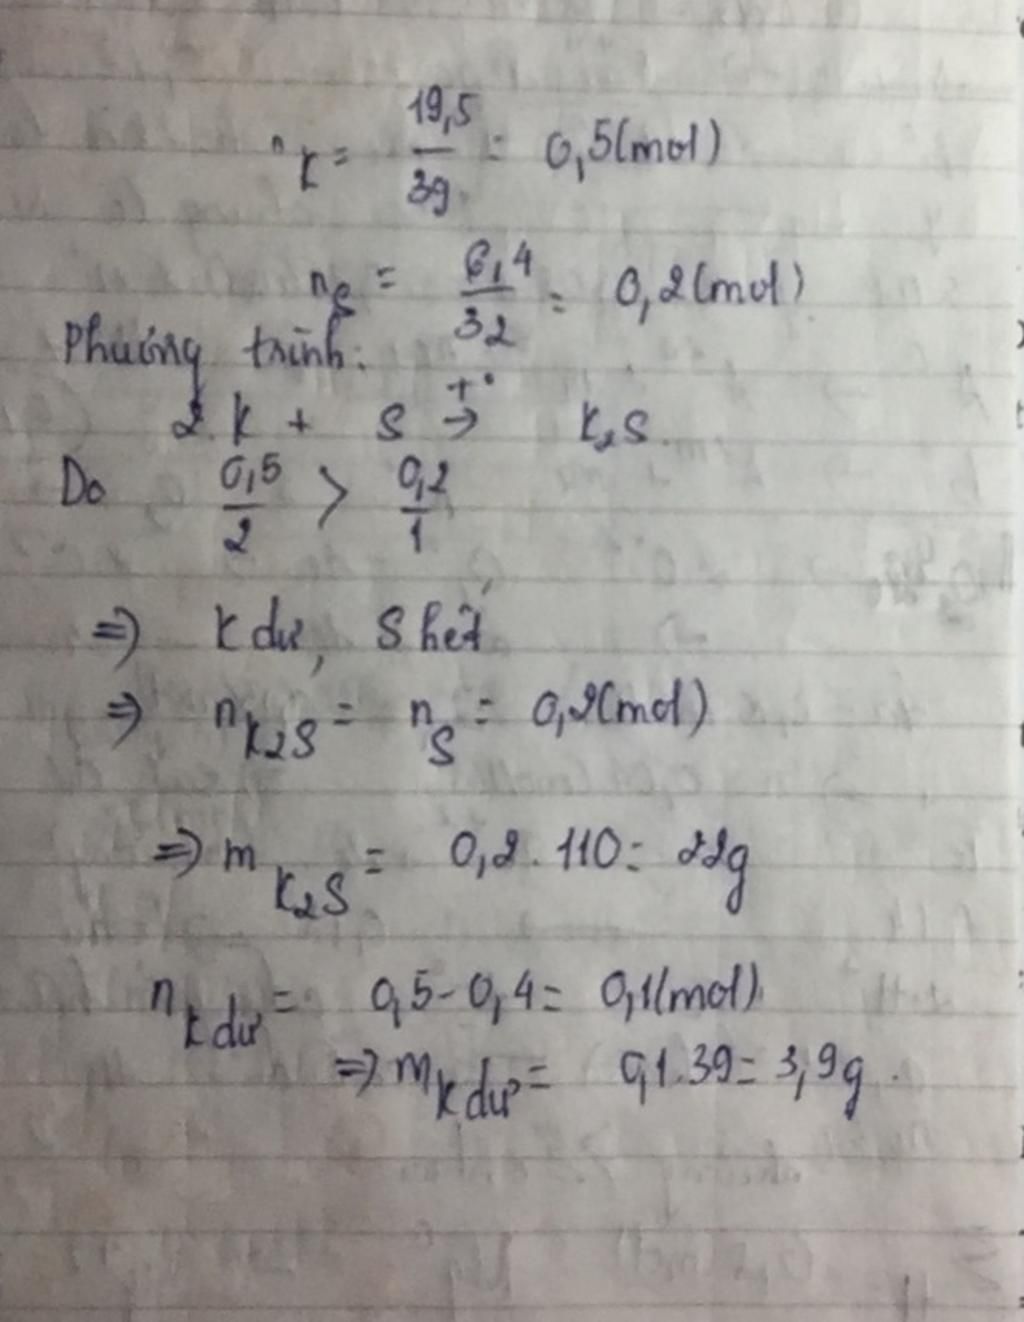 n_K = 19,5/39 = 0,5(mol)
n_S = 6,4/32 = 0,2(mol)
Phương trình:
2.K + S →(t°) K₂S
Do 0,5/2 > 0,2/1
⇒ K dư, S hết
⇒ n_K₂S = n_S = 0,2(mol)
⇒ m_K₂S = 0,2.110 = 22g
n_K dư = 0,5-0,4 = 0,1(mol)
⇒ m_K dư = 0,1.39 = 3,9g